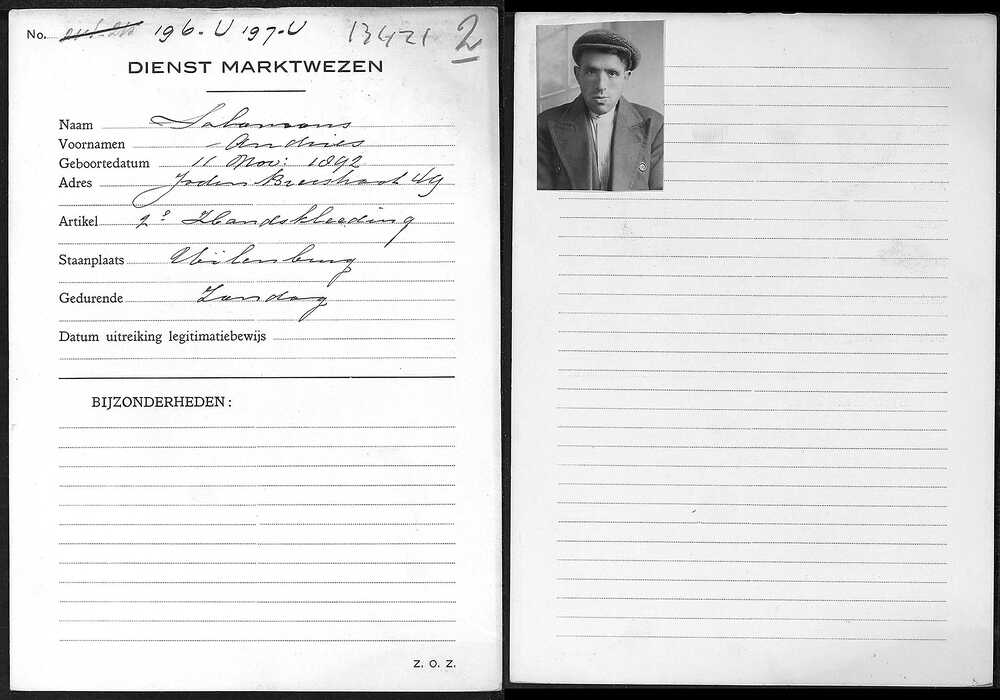 No. 196-U 197-U 13421 2
DIENST MARKTWEZEN
Naam Salomons
Voornamen Andries
Geboortedatum 11 Nov: 1892
Adres Joden Breestraat 49
Artikel 2e Handskleeding
Staanplaats Uilenburg
Gedurende Zondag
Datum uitreiking legitimatiebewijs
BIJZONDERHEDEN:
Z. O. Z.